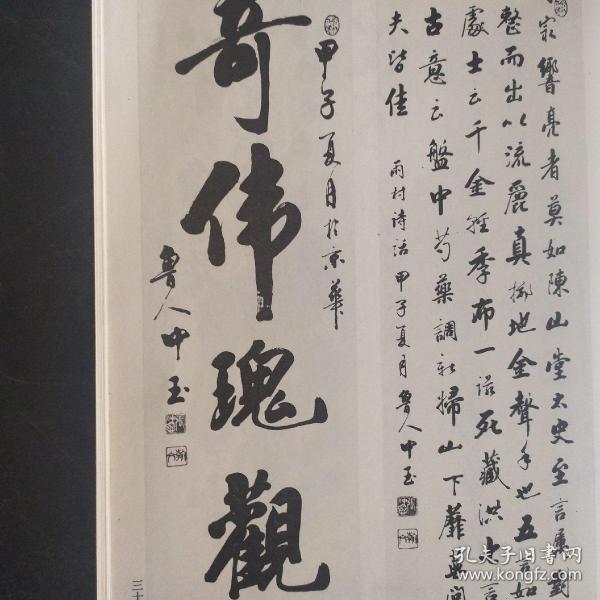 家響亮者莫如陳山堂太史至言屬對
整而出以流麗真擲地金聲手也五言如
處士云千金輕季布一諾死藏洪大言
古意云盤中芍藥調
掃山下蘼蕪問
夫皆佳
雨村詩話 甲子夏月 魯人中玉
甲子夏月於京華
奇伟瑰觀
魯人中玉
三十
孔夫子旧书网
www.kongfz.com